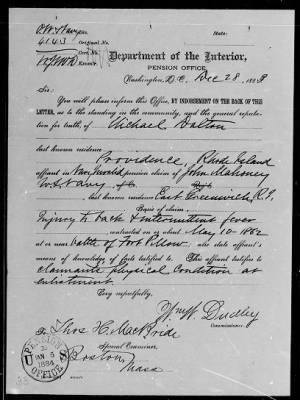 O.W. Navy
State:
4143 Original No.
Cert. No.
Exam'r.
Department of the Interior,
PENSION OFFICE,
Washington, D. C., Dec 28, 1883
Sir:
You will please inform this Office, BY INDORSEMENT ON THE BACK OF THIS
LETTER, as to the standing in the community, and the general reputa-
tion for truth, of Michael Dalton
last known residence
Providence, Rhode Island
affiant in Navy Invalid pension claim of John Mahoney
U.S. Navy
last known residence East Greenwich, R.I.
Basis of claim,
Injury to back & intermittent fever
contracted on or about May 10 1862
at or near battle of Fort Pillow. also state affiant's
means of knowledge of facts testified to. The affiant testifies to
claimants physical condition at
enlistment.
Very respectfully,
Wm W. Dudley
Commissioner.
To Thos H. MacBride
Special Examiner,
Boston,
Mass
U.S. PENSION OFFICE
JAN 5
1884